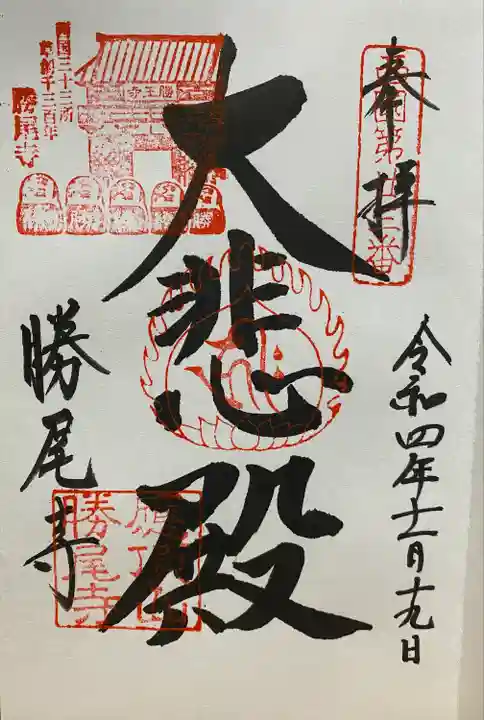 奉拝
西国第廿三番
令和四年十一月十九日
大悲殿
西国三十三所
草創千三百年
勝尾寺
勝王寺
勝尾寺
応頂山
勝尾寺